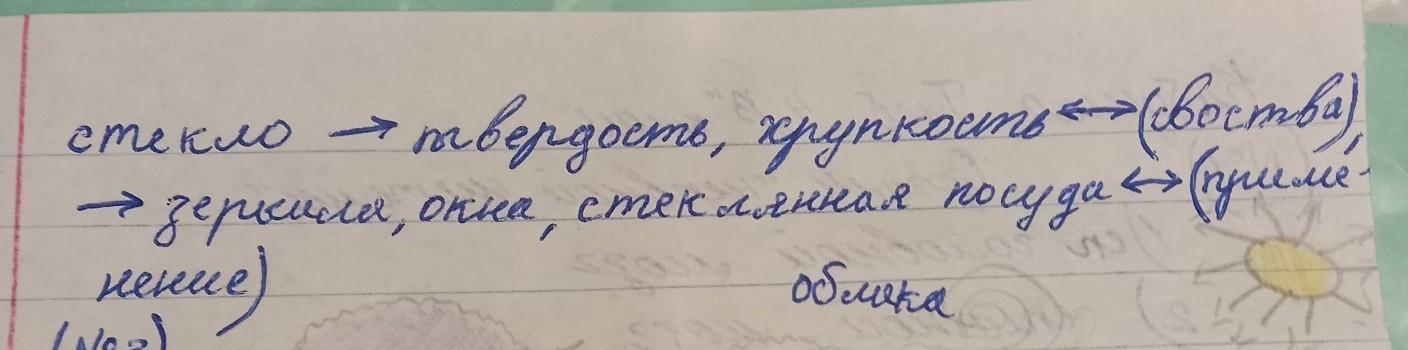 стекло → твердость, хрупкость ↔ (своства),
→ зеркала, окна, стеклянная посуда ↔ (приме-
нение)
облака
(№3)